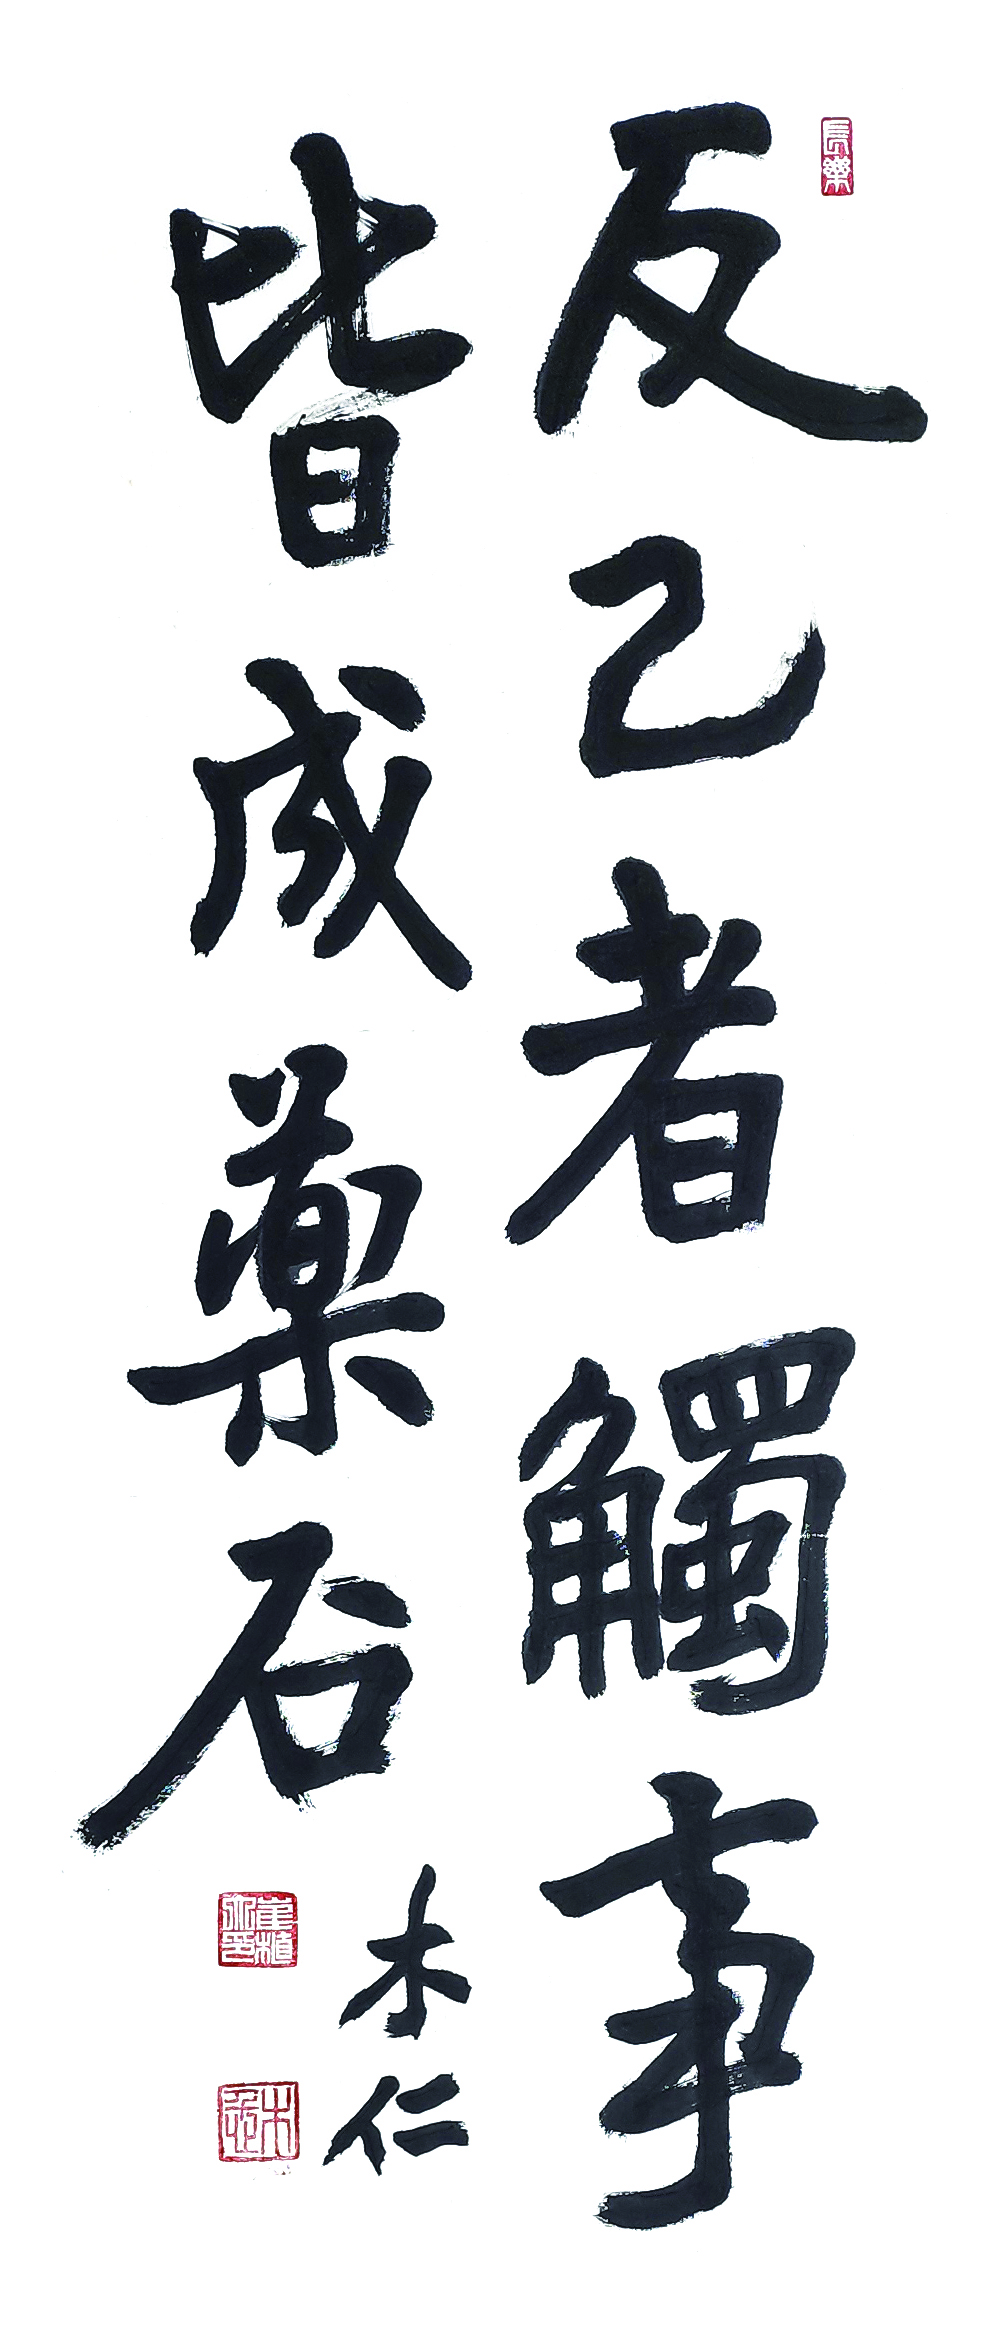 反己者觸事
皆成藥石
木仁
長樂